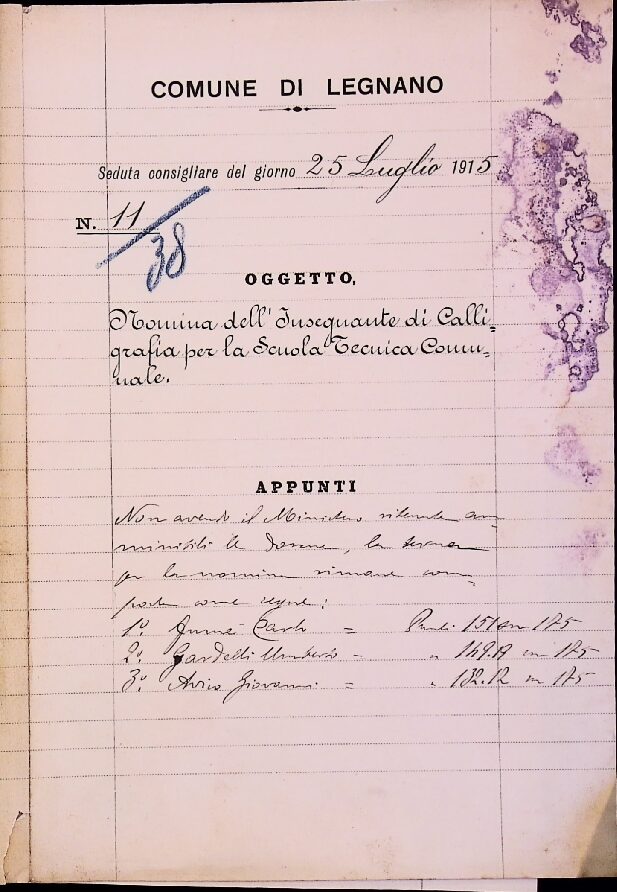 COMUNE DI LEGNANO
Seduta consigliare del giorno 25 Luglio 1915
N. 11
38
OGGETTO,
Nomina dell'Insegnante di Calli=
grafia per la Scuola Tecnica Comu=
nale.
APPUNTI
Non avendo il Ministero ritenute am=
minisibili le donne, la terna
per la nomina rimane com=
posta come segue:
1º. Carlo = Punti 151 su 175
2º. Gardelli Umberto - " 149.17 su 175
3º. Giovanni = " 132.12 su 175